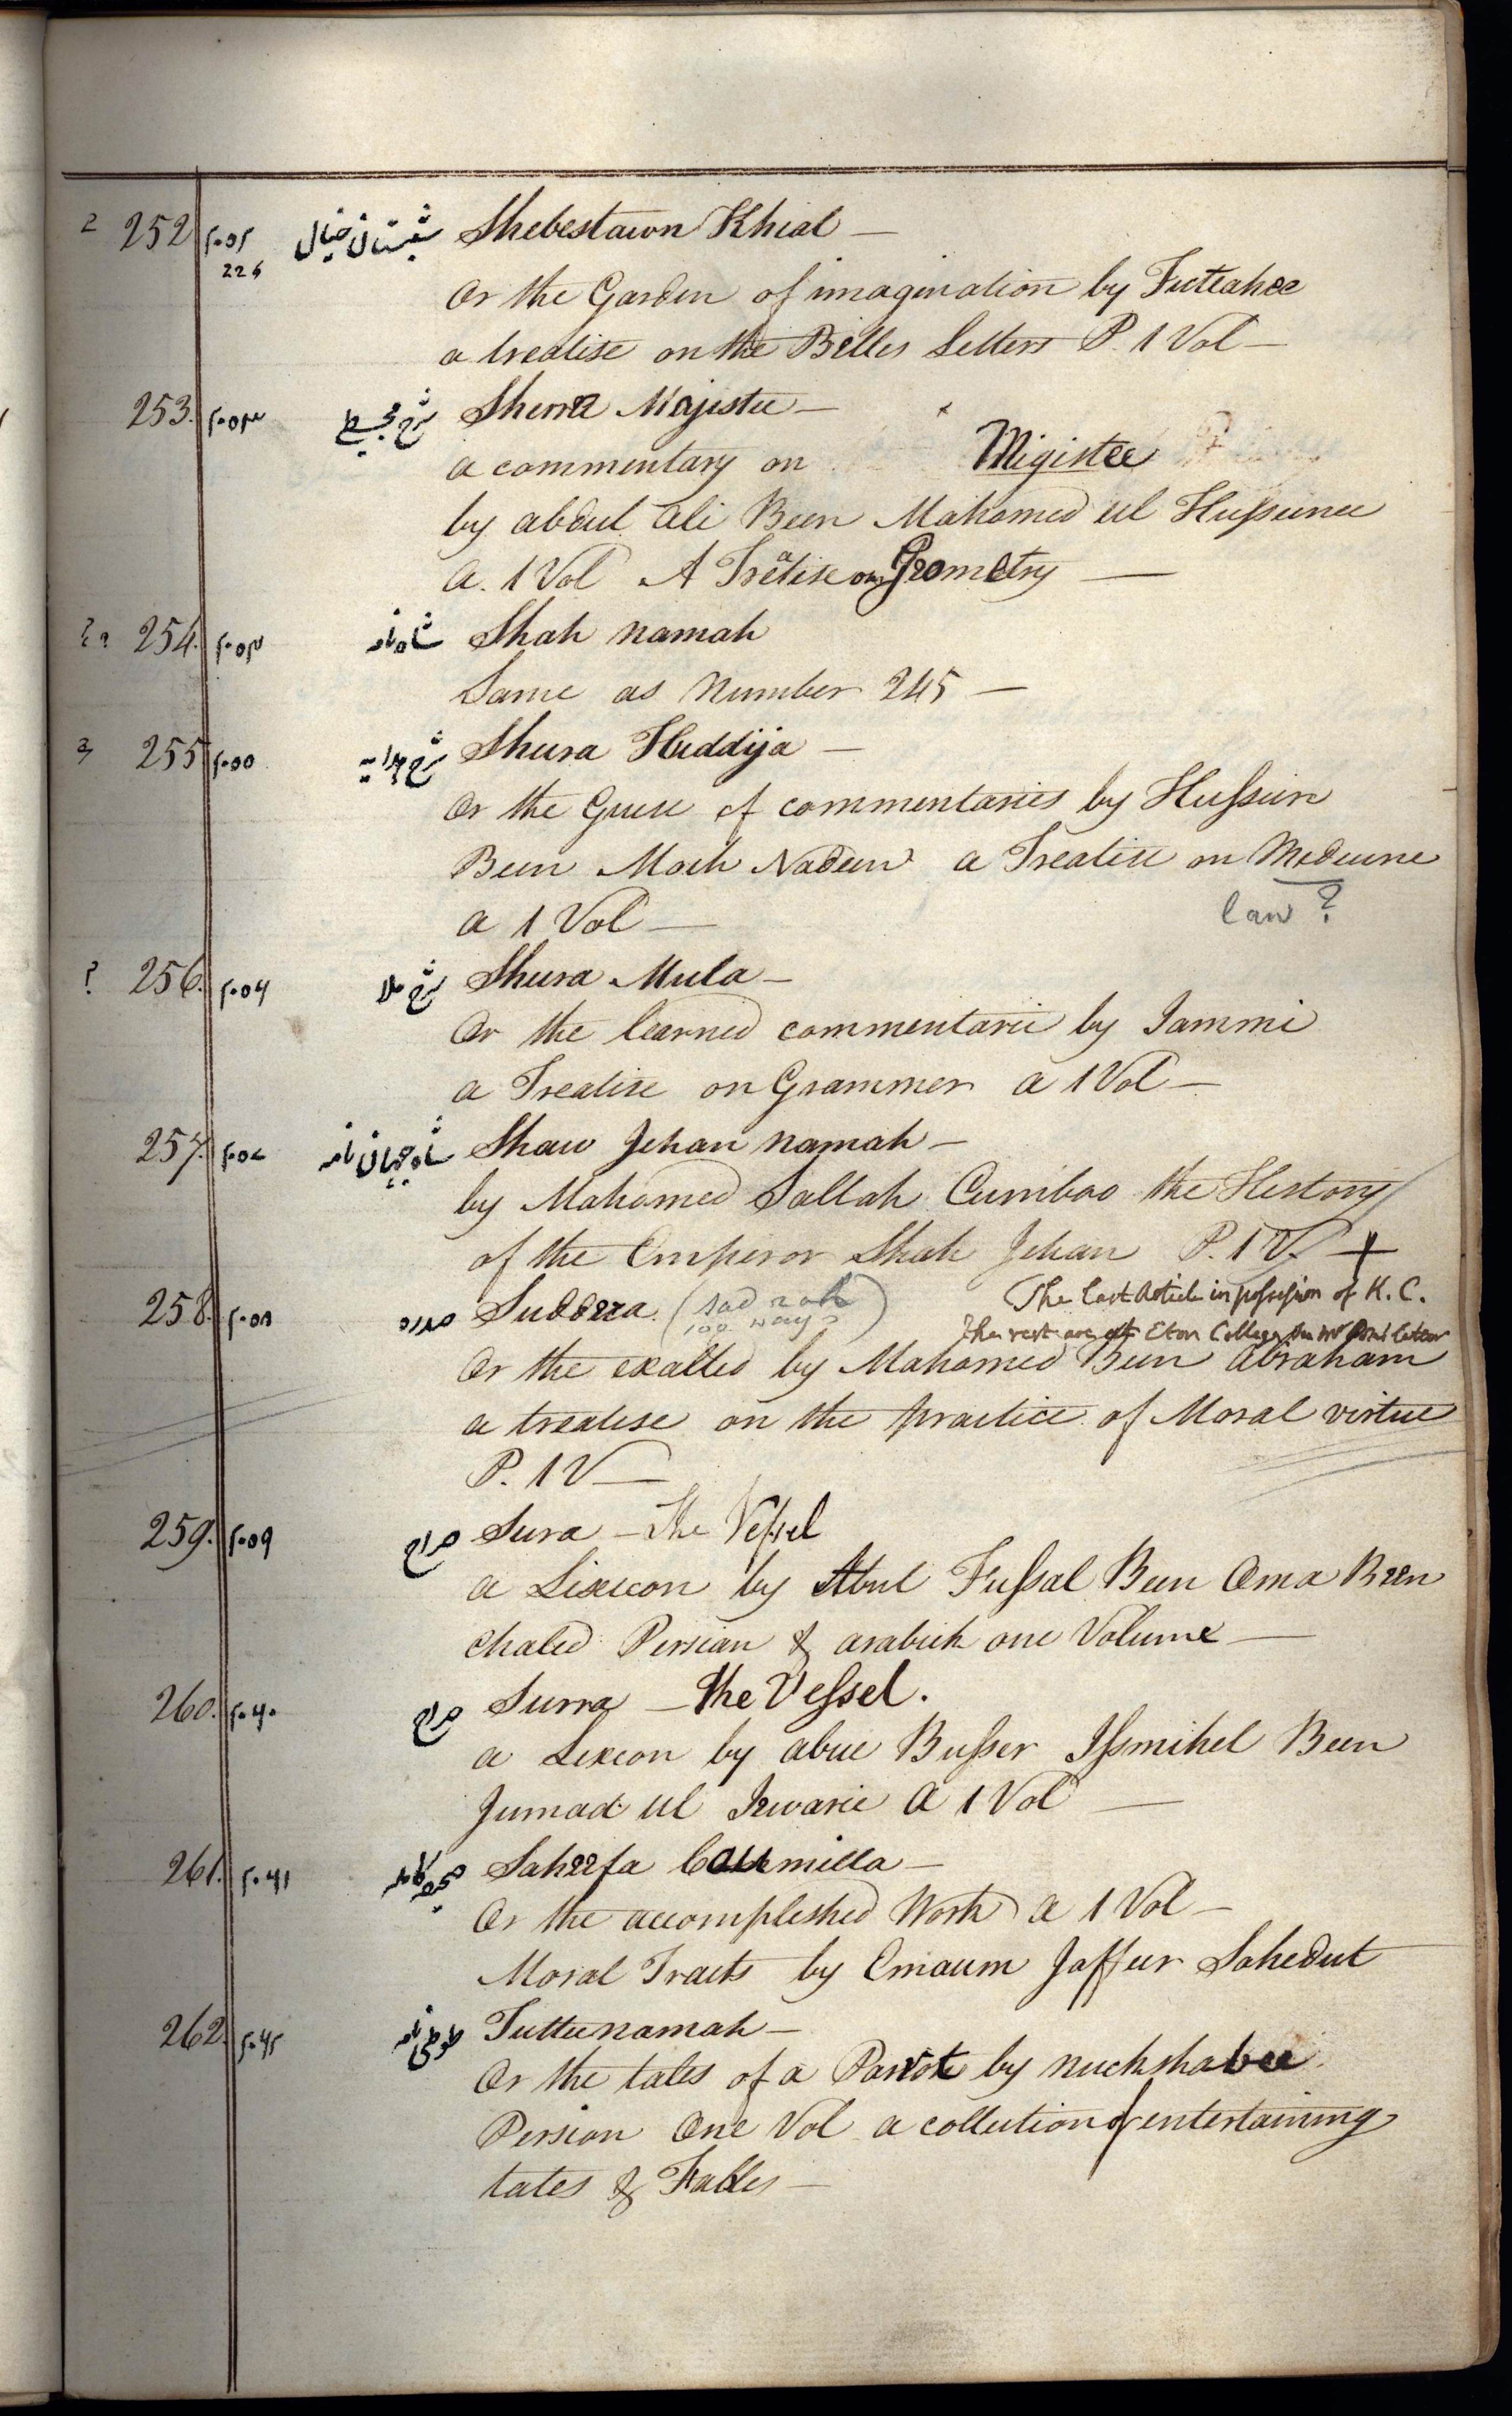 2 252 ٢٠٥٢ شبستان خیال Shebestawn Khial —
226
Or the Garden of imagination by Futtahee
a treatise on the Belles Letters P. 1 Vol —
253. ٢٠٥٣ شرح مجسطی Sherra Majistee —
a commentary on Migistee
by abdul Ali Been Mahomed ul Husseinee
A. 1 Vol A Treatise on Geometry —
254. ٢٠٥٤ شاه نامه Shah namah
Same as Number 245 —
255 ٢٠٥٥ شرح هدایه Shura Huddija —
Or the Guise of commentaries by Hussein
Been Moeh Nadeen a Treatise on Medecine
law ?
a 1 Vol —
? 256. ٢٠٥٦ شرح ملا Shura Mula —
Or the learned commentarie by Jammi
a Treatise on Grammer a 1 Vol —
257. ٢٠٥٧ شاه جهان نامه Shaw Jehan namah —
by Mahomed Sallah Cumboo the History
of the Emperor Shah Jehan P. 1 V. +
The last Article in possession of K. C.
the rest are at Eton College
258. ٢٠٥٨ صدره Suddera (sad rah
100 ways)
Or the exalted by Mahomed Been Abraham
a treatise on the practice of Moral virtue
P. 1 V —
259. ٢٠٥٩ صراح Sura — The Vessel
a Lexicon by Abul Fussal Been Oma Been
Chaled Persian & arabick one Volume —
260. ٢٠٦٠ صراح Surra — The Vessel.
a Lexicon by abue Busser Issmihel Been
Jumad ul Jewarie A 1 Vol —
261. ٢٠٦١ صحیفه کامله Saheefa Caumilla —
Or the accomplished Work a 1 Vol —
Moral Tracts by Emaum Jaffur Sahedut
262. ٢٠٦٢ طوطی نامه Tutteenamah —
Or the tales of a Parrot by nuckshabee.
Persian One Vol a collection of entertaining
tales & Fables —